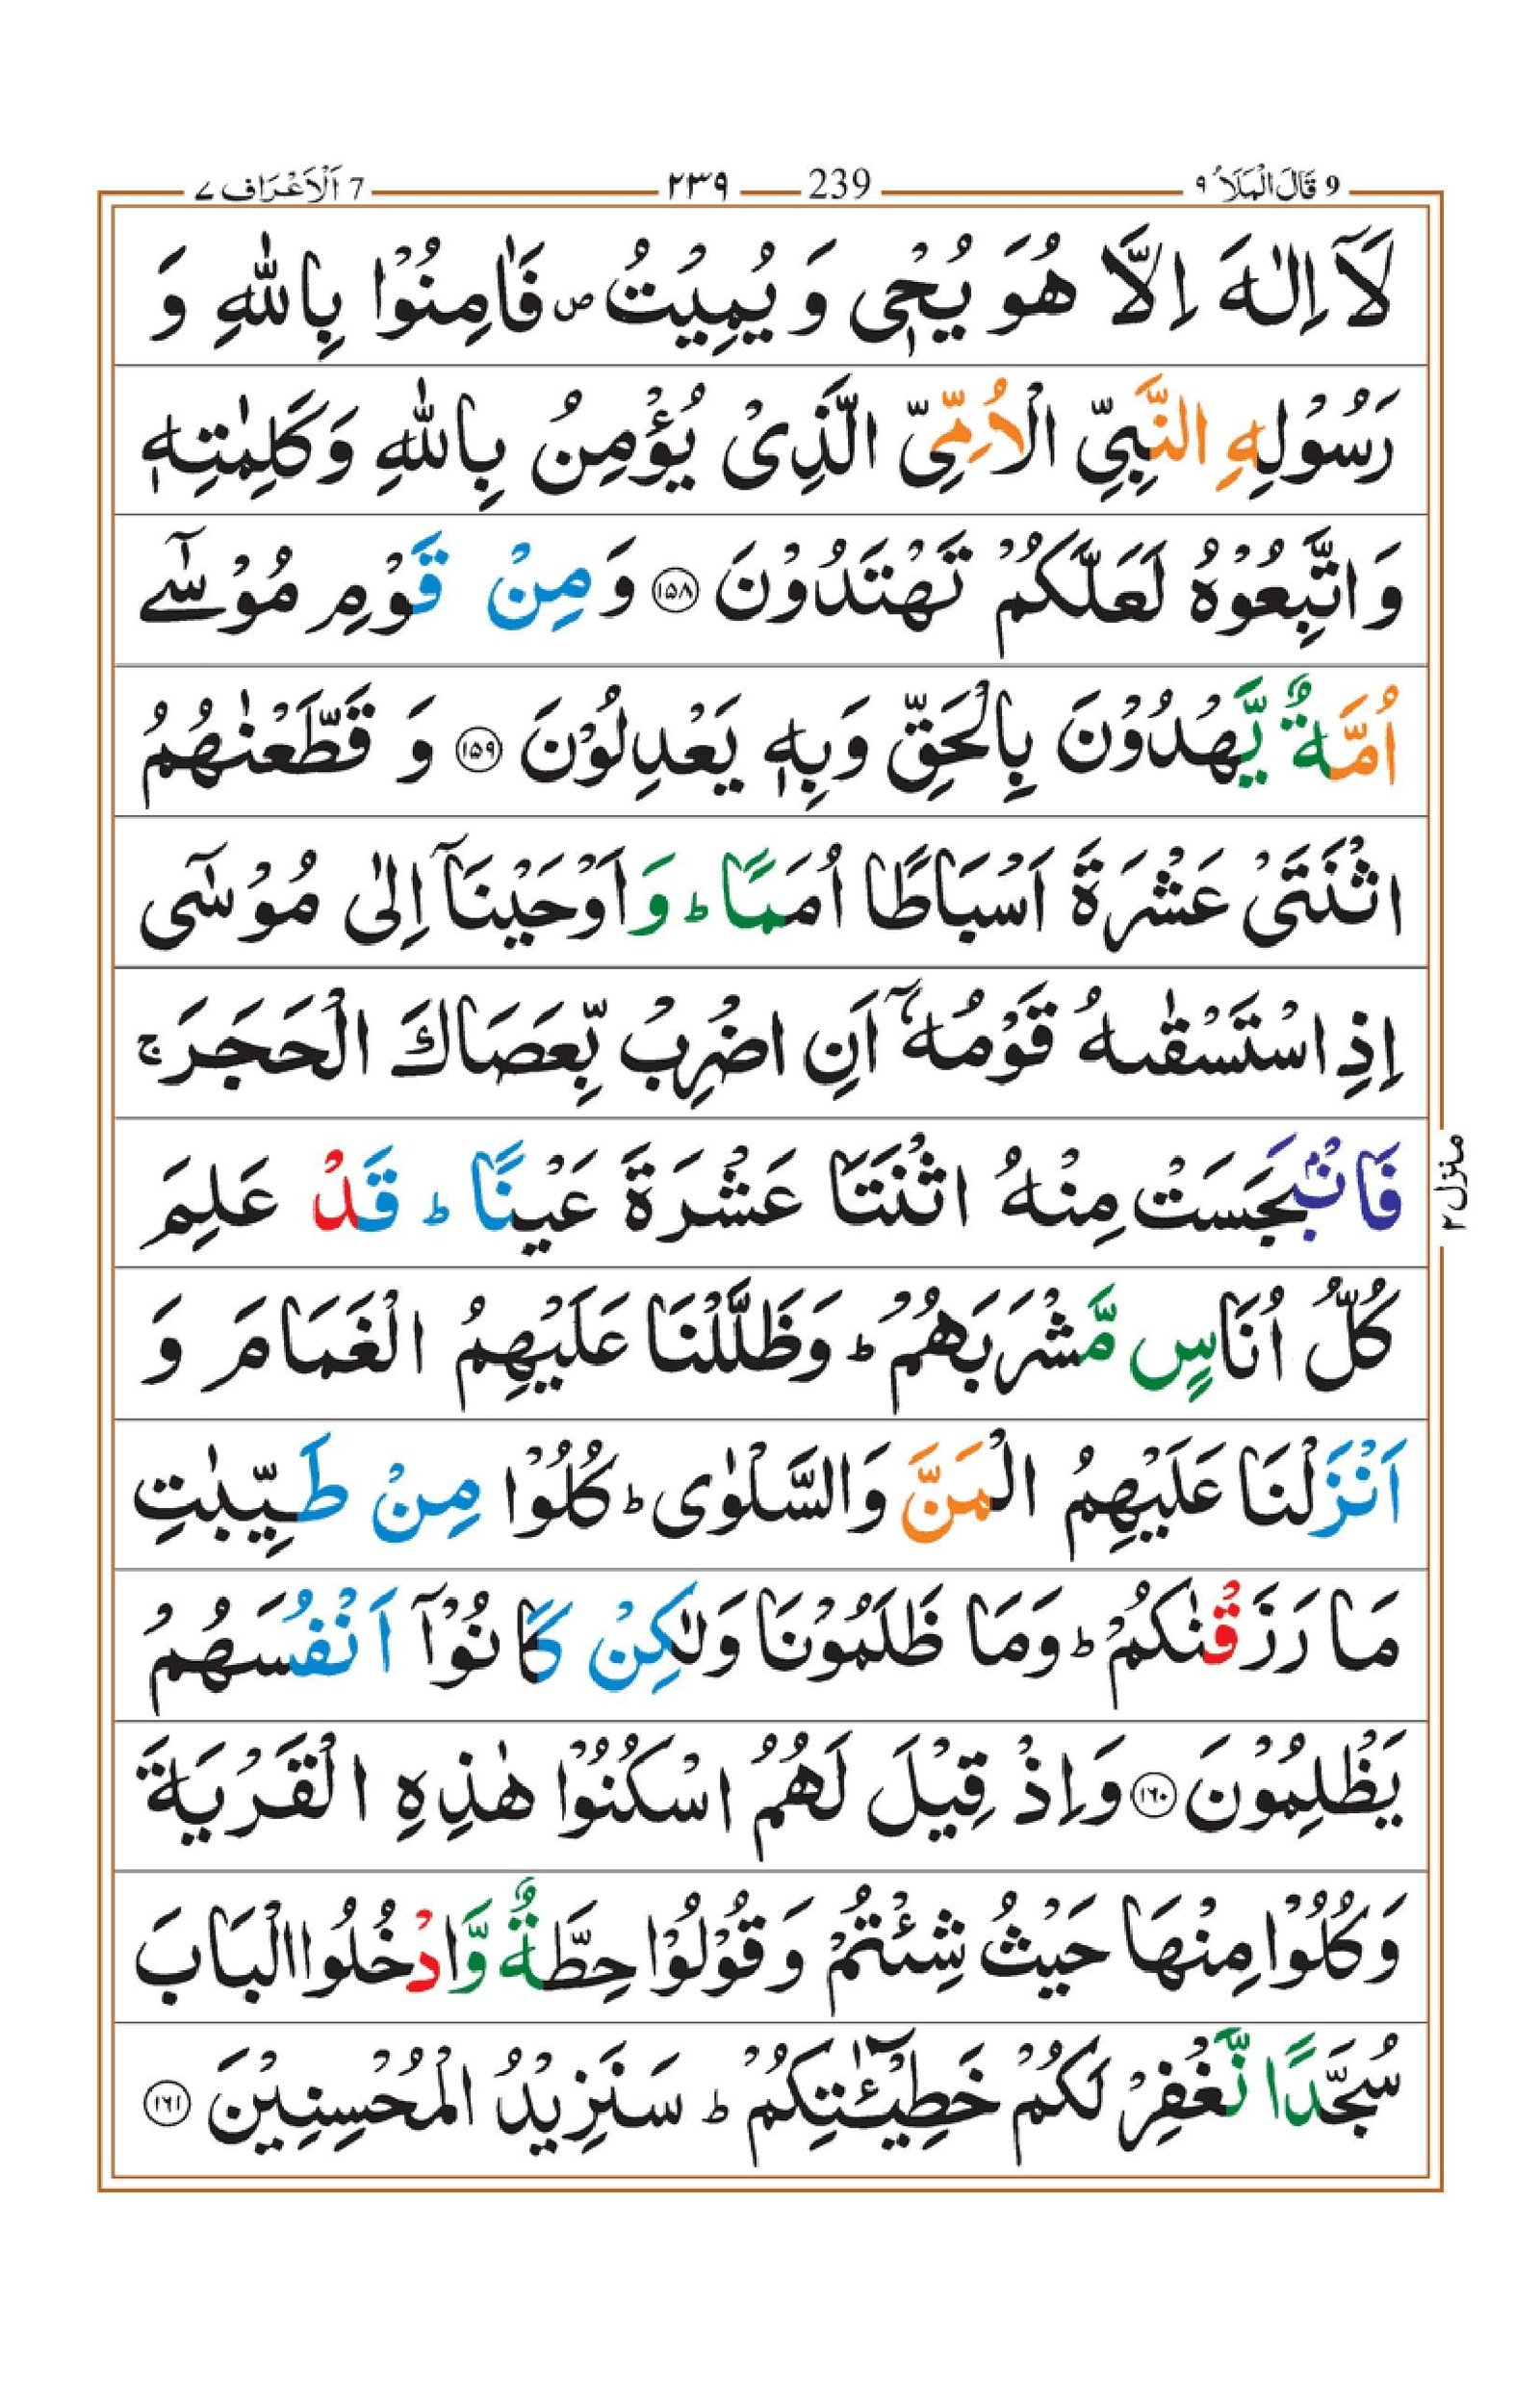 9 قَالَ الْمَلَاُ ٩ 239 ٢٣٩ 7 اَلْاَعْرَاف ٧
لَاۤ اِلٰهَ اِلَّا هُوَ یُحْیٖ وَ یُمِیْتُ۪ فَاٰمِنُوْا بِاللّٰهِ وَ
رَسُوْلِهِ النَّبِیِّ الْاُمِّیِّ الَّذِیْ یُؤْمِنُ بِاللّٰهِ وَكَلِمٰتِهٖ
وَ اتَّبِعُوْهُ لَعَلَّكُمْ تَهْتَدُوْنَ ﴿١٥٨﴾ وَ مِنْ قَوْمِ مُوْسٰۤے
اُمَّةٌ یَّهْدُوْنَ بِالْحَقِّ وَبِهٖ یَعْدِلُوْنَ ﴿١٥٩﴾ وَ قَطَّعْنٰهُمُ
اثْنَتَیْ عَشْرَةَ اَسْبَاطًا اُمَمًا ؕ وَ اَوْحَیْنَاۤ اِلٰی مُوْسٰۤی
اِذِ اسْتَسْقٰىهُ قَوْمُهٗۤ اَنِ اضْرِبْ بِّعَصَاكَ الْحَجَرَ ۚ
فَانْۢبَجَسَتْ مِنْهُ اثْنَتَا عَشْرَةَ عَیْنًا ؕ قَدْ عَلِمَ
كُلُّ اُنَاسٍ مَّشْرَبَهُمْ ؕ وَظَلَّلْنَا عَلَیْهِمُ الْغَمَامَ وَ
اَنْزَلْنَا عَلَیْهِمُ الْمَنَّ وَالسَّلْوٰی ؕ كُلُوْا مِنْ طَیِّبٰتِ
مَا رَزَقْنٰكُمْ ؕ وَمَا ظَلَمُوْنَا وَلٰكِنْ كَانُوْۤا اَنْفُسَهُمْ
یَظْلِمُوْنَ ﴿١٦٠﴾ وَاِذْ قِیْلَ لَهُمُ اسْكُنُوْا هٰذِهِ الْقَرْیَةَ
وَكُلُوْا مِنْهَا حَیْثُ شِئْتُمْ وَ قُوْلُوْا حِطَّةٌ وَّادْخُلُوا الْبَابَ
سُجَّدًا نَّغْفِرْ لَكُمْ خَطِیْٓـٰٔتِكُمْ ؕ سَنَزِیْدُ الْمُحْسِنِیْنَ ﴿١٦١﴾
منزل ٢